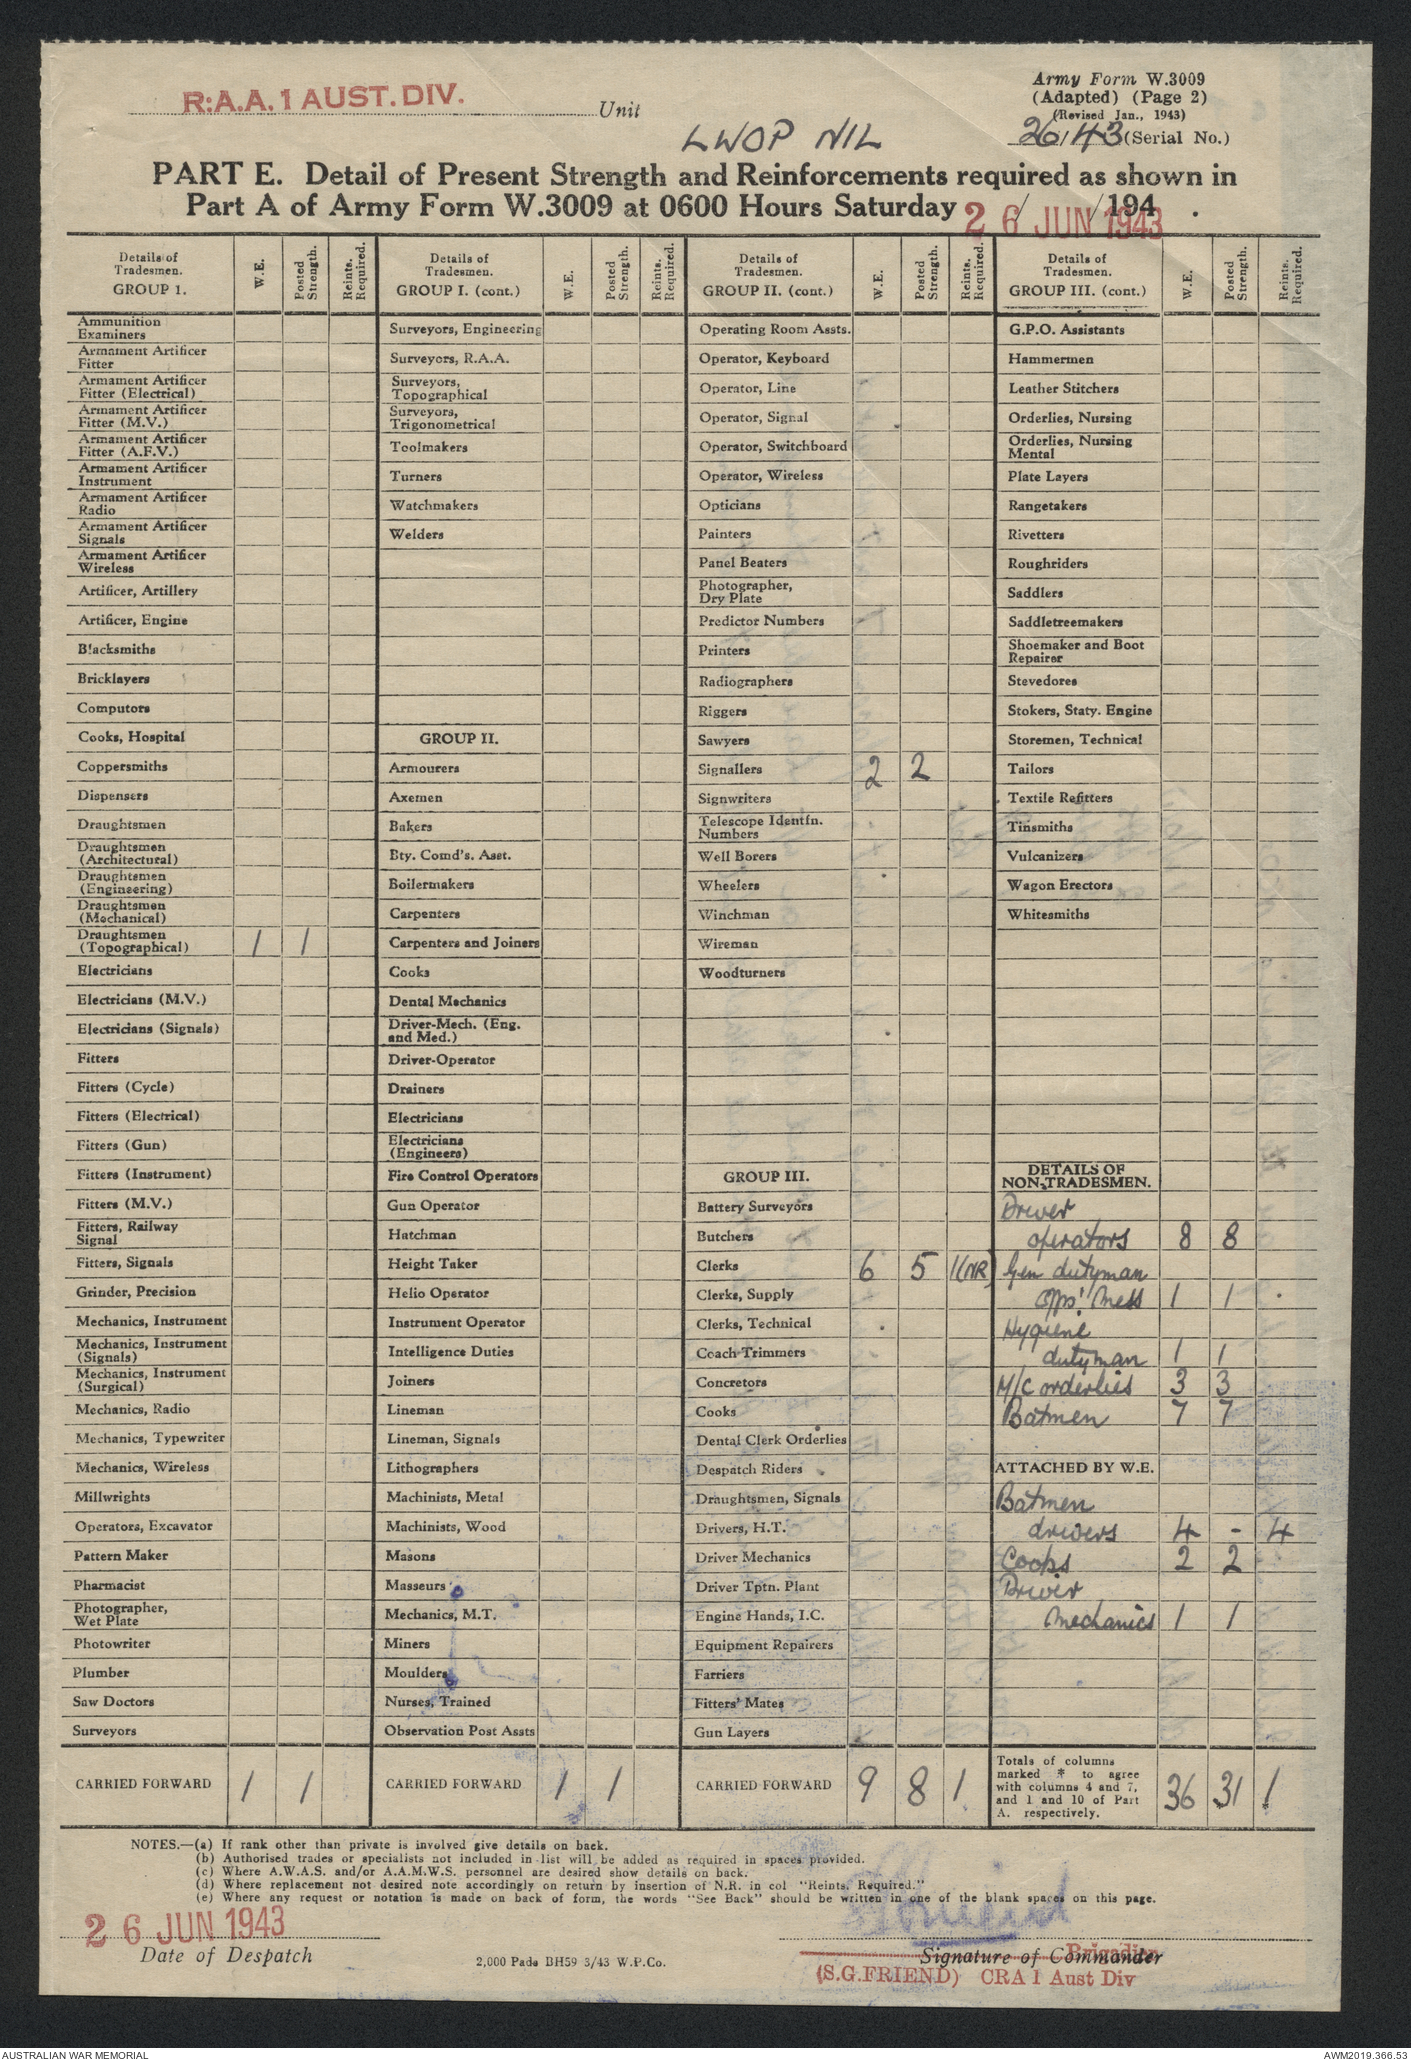 R.A.A. 1 AUST. DIV. Unit
Army Form W.3009
(Adapted) (Page 2)
(Revised Jan., 1943)
26/43 (Serial No.)
LWOP NIL
PART E. Detail of Present Strength and Reinforcements required as shown in
Part A of Army Form W.3009 at 0600 Hours Saturday 26 JUN 1943 / /194 .
Details of Tradesmen. GROUP 1. W.E. Posted Strength. Reints. Required.
Ammunition Examiners
Armament Artificer Fitter
Armament Artificer Fitter (Electrical)
Armament Artificer Fitter (M.V.)
Armament Artificer Fitter (A.F.V.)
Armament Artificer Instrument
Armament Artificer Radio
Armament Artificer Signals
Armament Artificer Wireless
Artificer, Artillery
Artificer, Engine
Blacksmiths
Bricklayers
Computors
Cooks, Hospital
Coppersmiths
Dispensers
Draughtsmen
Draughtsmen (Architectural)
Draughtsmen (Engineering)
Draughtsmen (Mechanical)
Draughtsmen (Topographical) 1 1
Electricians
Electricians (M.V.)
Electricians (Signals)
Fitters
Fitters (Cycle)
Fitters (Electrical)
Fitters (Gun)
Fitters (Instrument)
Fitters (M.V.)
Fitters, Railway Signal
Fitters, Signals
Grinder, Precision
Mechanics, Instrument
Mechanics, Instrument (Signals)
Mechanics, Instrument (Surgical)
Mechanics, Radio
Mechanics, Typewriter
Mechanics, Wireless
Millwrights
Operators, Excavator
Pattern Maker
Pharmacist
Photographer, Wet Plate
Photowriter
Plumber
Saw Doctors
Surveyors
CARRIED FORWARD 1 1
Details of Tradesmen. GROUP I. (cont.) W.E. Posted Strength. Reints. Required.
Surveyors, Engineering
Surveyors, R.A.A.
Surveyors, Topographical
Surveyors, Trigonometrical
Toolmakers
Turners
Watchmakers
Welders
GROUP II.
Armourers
Axemen
Bakers
Bty. Comd's. Asst.
Boilermakers
Carpenters
Carpenters and Joiners
Cooks
Dental Mechanics
Driver-Mech. (Eng. and Med.)
Driver-Operator
Drainers
Electricians
Electricians (Engineers)
Fire Control Operators
Gun Operator
Hatchman
Height Taker
Helio Operator
Instrument Operator
Intelligence Duties
Joiners
Lineman
Lineman, Signals
Lithographers
Machinists, Metal
Machinists, Wood
Masons
Masseurs
Mechanics, M.T.
Miners
Moulders
Nurses, Trained
Observation Post Assts
CARRIED FORWARD 1 1
Details of Tradesmen. GROUP II. (cont.) W.E. Posted Strength. Reints. Required.
Operating Room Assts.
Operator, Keyboard
Operator, Line
Operator, Signal
Operator, Switchboard
Operator, Wireless
Opticians
Painters
Panel Beaters
Photographer, Dry Plate
Predictor Numbers
Printers
Radiographers
Riggers
Sawyers
Signallers 2 2
Signwriters
Telescope Identfn. Numbers
Well Borers
Wheelers
Winchman
Wireman
Woodturners
GROUP III.
Battery Surveyors
Butchers
Clerks 6 5 1(NR)
Clerks, Supply
Clerks, Technical
Coach Trimmers
Concretors
Cooks
Dental Clerk Orderlies
Despatch Riders
Draughtsmen, Signals
Drivers, H.T.
Driver Mechanics
Driver Tptn. Plant
Engine Hands, I.C.
Equipment Repairers
Farriers
Fitters' Mates
Gun Layers
CARRIED FORWARD 9 8 1
Details of Tradesmen. GROUP III. (cont.) W.E. Posted Strength. Reints. Required.
G.P.O. Assistants
Hammermen
Leather Stitchers
Orderlies, Nursing
Orderlies, Nursing Mental
Plate Layers
Rangetakers
Rivetters
Roughriders
Saddlers
Saddletreemakers
Shoemaker and Boot Repairer
Stevedores
Stokers, Staty. Engine
Storemen, Technical
Tailors
Textile Refitters
Tinsmiths
Vulcanizers
Wagon Erectors
Whitesmiths
DETAILS OF NON-TRADESMEN.
Driver
operators 8 8
Gen dutyman
Offrs' Mess 1 1
Hygiene
dutyman 1 1
M/C orderlies 3 3
Batmen 7 7
ATTACHED BY W.E.
Batmen
drivers 4 - 4
Cooks 2 2
Driver
mechanics 1 1
Totals of columns marked * to agree with columns 4 and 7, and 1 and 10 of Part A. respectively. 36 31 1
NOTES.—(a) If rank other than private is involved give details on back.
(b) Authorised trades or specialists not included in list will be added as required in spaces provided.
(c) Where A.W.A.S. and/or A.A.M.W.S. personnel are desired show details on back.
(d) Where replacement not desired note accordingly on return by insertion of N.R. in col "Reints. Required."
(e) Where any request or notation is made on back of form, the words "See Back" should be written in one of the blank spaces on this page.
26 JUN 1943
Date of Despatch
2,000 Pads BH59 3/43 W.P.Co.
Brigadier
Signature of Commander
(S.G.FRIEND) CRA 1 Aust Div
AUSTRALIAN WAR MEMORIAL
AWM2019.366.53